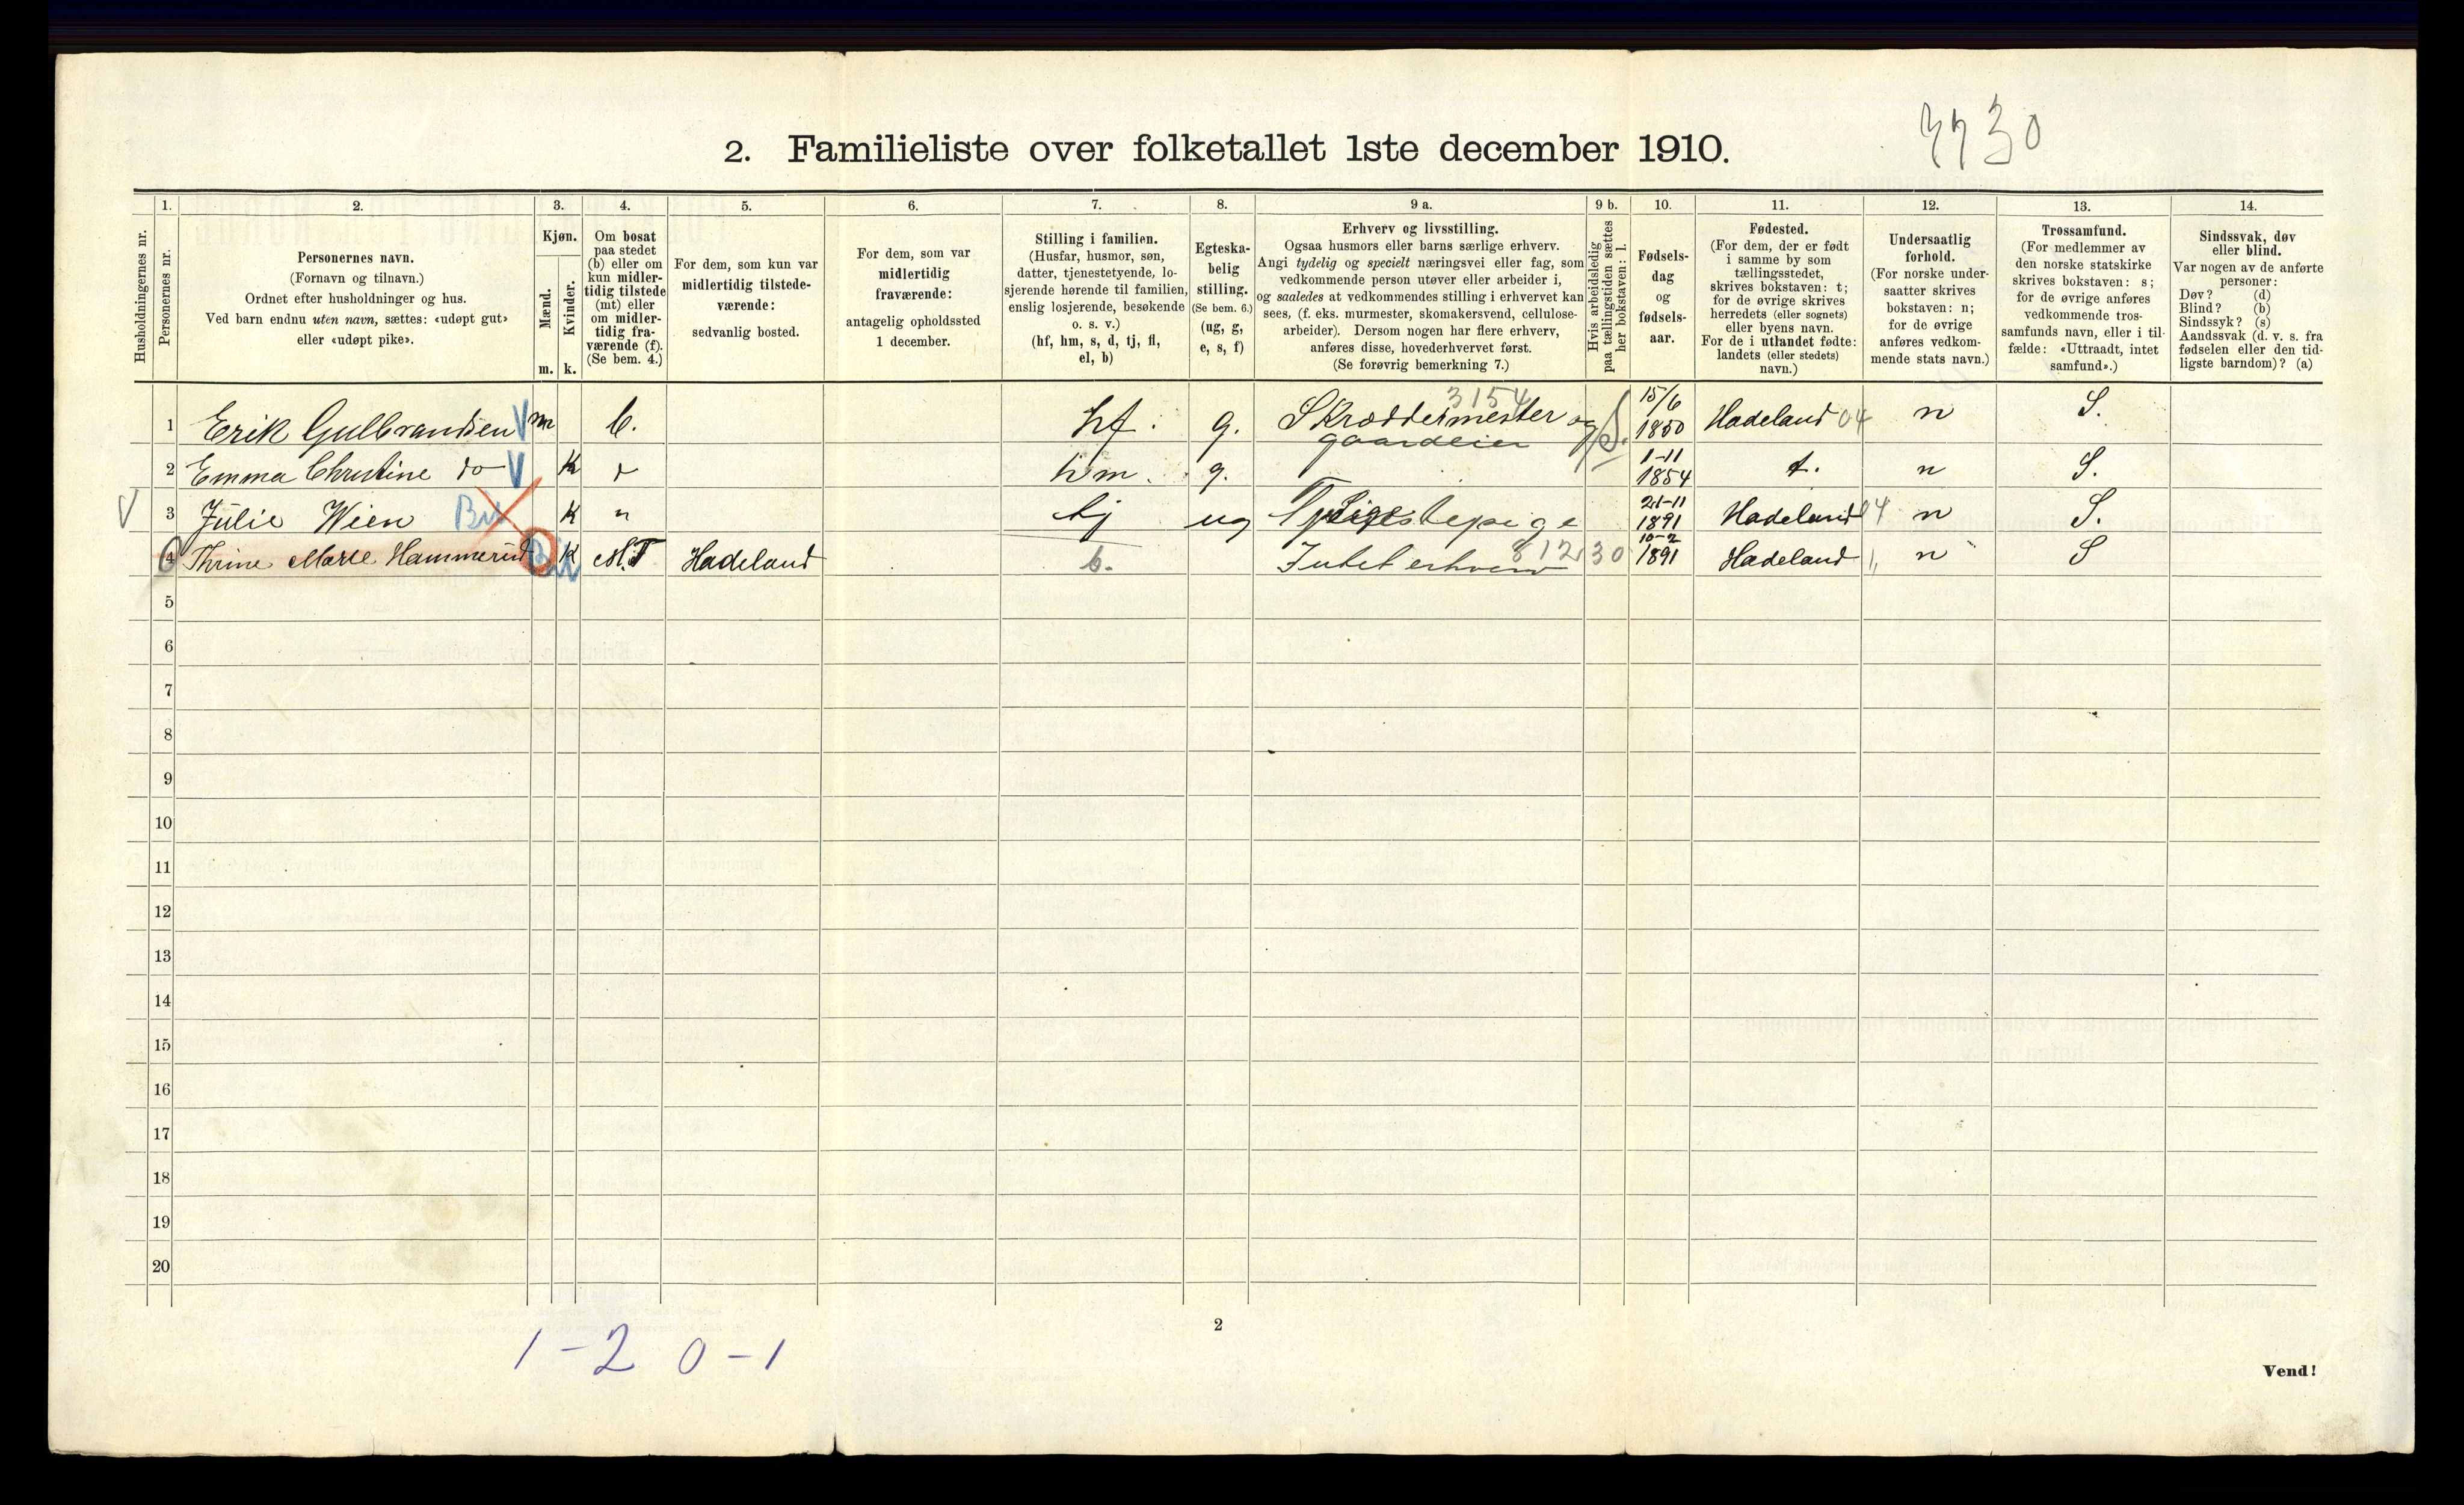 3730
2. Familieliste over folketallet 1ste december 1910.
Husholdningernes nr.
1.
Personernes nr.
2.
Personernes navn.
(Fornavn og tilnavn.)
Ordnet efter husholdninger og hus.
Ved barn endnu uten navn, sættes: «udøpt gut»
eller «udøpt pike».
3.
Kjøn.
Mænd.
Kvinder.
m. k.
4.
Om bosat
paa stedet
(b) eller om
kun midler-
tidig tilstede
(mt) eller
om midler-
tidig fra-
værende (f).
(Se bem. 4.)
5.
For dem, som kun var
midlertidig tilstede-
værende:
sedvanlig bosted.
6.
For dem, som var
midlertidig
fraværende:
antagelig opholdssted
1 december.
7.
Stilling i familien.
(Husfar, husmor, søn,
datter, tjenestetyende, lo-
sjerende hørende til familien,
enslig losjerende, besøkende
o. s. v.)
(hf, hm, s, d, tj, fl,
el, b)
8.
Egteska-
belig
stilling.
(Se bem. 6.)
(ug, g,
e, s, f)
9 a.
Erhverv og livsstilling.
Ogsaa husmors eller barns særlige erhverv.
Angi tydelig og specielt næringsvei eller fag, som
vedkommende person utøver eller arbeider i,
og saaledes at vedkommendes stilling i erhvervet kan
sees, (f. eks. murmester, skomakersvend, cellulose-
arbeider). Dersom nogen har flere erhverv,
anføres disse, hovederhvervet først.
(Se forøvrig bemerkning 7.)
9 b.
Hvis arbeidsledig
paa tællingstiden sættes
her bokstaven: l.
10.
Fødsels-
dag
og
fødsels-
aar.
11.
Fødested.
(For dem, der er født
i samme by som
tællingsstedet,
skrives bokstaven: t;
for de øvrige skrives
herredets (eller sognets)
eller byens navn.
For de i utlandet fødte:
landets (eller stedets)
navn.)
12.
Undersaatlig
forhold.
(For norske under-
saatter skrives
bokstaven: n;
for de øvrige
anføres vedkom-
mende stats navn.)
13.
Trossamfund.
(For medlemmer av
den norske statskirke
skrives bokstaven: s;
for de øvrige anføres
vedkommende tros-
samfunds navn, eller i til-
fælde: «Uttraadt, intet
samfund».)
14.
Sindssvak, døv
eller blind.
Var nogen av de anførte
personer:
Døv? (d)
Blind? (b)
Sindssyk? (s)
Aandssvak (d. v. s. fra
fødselen eller den tid-
ligste barndom)? (a)
3154
1 Erik Gulbrandsen V m b. hf. g. Skræddermester og gaardeier S. 15/6 1850 Hadeland 04 n S.
2 Emma Christine do V K hm. g. 1-11 1854 t. n S.
V 3 Julie Wien K " tj ug 21-11 1891 Hadeland 04 n S.
4 Thrine Marie Hammerud K M.T Hadeland b. Intet erhverv 812 30 10-2 1891 Hadeland " n S
5
6
7
8
9
10
11
12
13
14
15
16
17
18
19
20
2
1-2 0-1
Vend!